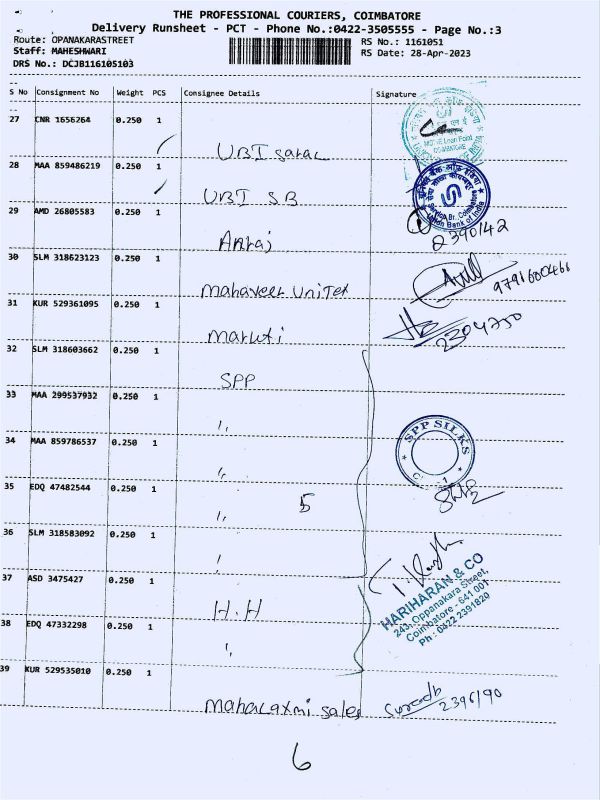 THE PROFESSIONAL COURIERS, COIMBATORE
Delivery Runsheet - PCT - Phone No.:0422-3505555 - Page No.:3
Route: OPANAKARASTREET
Staff: MAHESHWARI
DRS No.: DCJB116105103
RS No.: 1161051
RS Date: 28-Apr-2023
S No Consignment No Weight PCS Consignee Details Signature
27 CNR 1656264 0.250 1
UBI
MOTHE Loan Point
COIMBATORE
28 MAA 859486219 0.250 1 UBI SB
Union Bank of India
29 AMD 26805583 0.250 1
2390142
30 SLM 318623123 0.250 1 Mahaveer Unitex
9791600466
31 KUR 529361095 0.250 1 Maruti
2304750
32 SLM 318603662 0.250 1 SPP
33 MAA 299537932 0.250 1 ,,
SPP SILKS
34 MAA 859786537 0.250 1 ,,
35 EDQ 47482544 0.250 1 ,, 5
36 SLM 318583092 0.250 1
37 ASD 3475427 0.250 1 H.H
HARIHARAN & CO
243, Oppanakara Street,
Coimbatore - 641 001
Ph : 0422 2391820
38 EDQ 47332298 0.250 1 ,,
39 KUR 529535010 0.250 1 Mahalaxmi sales
2396190
6